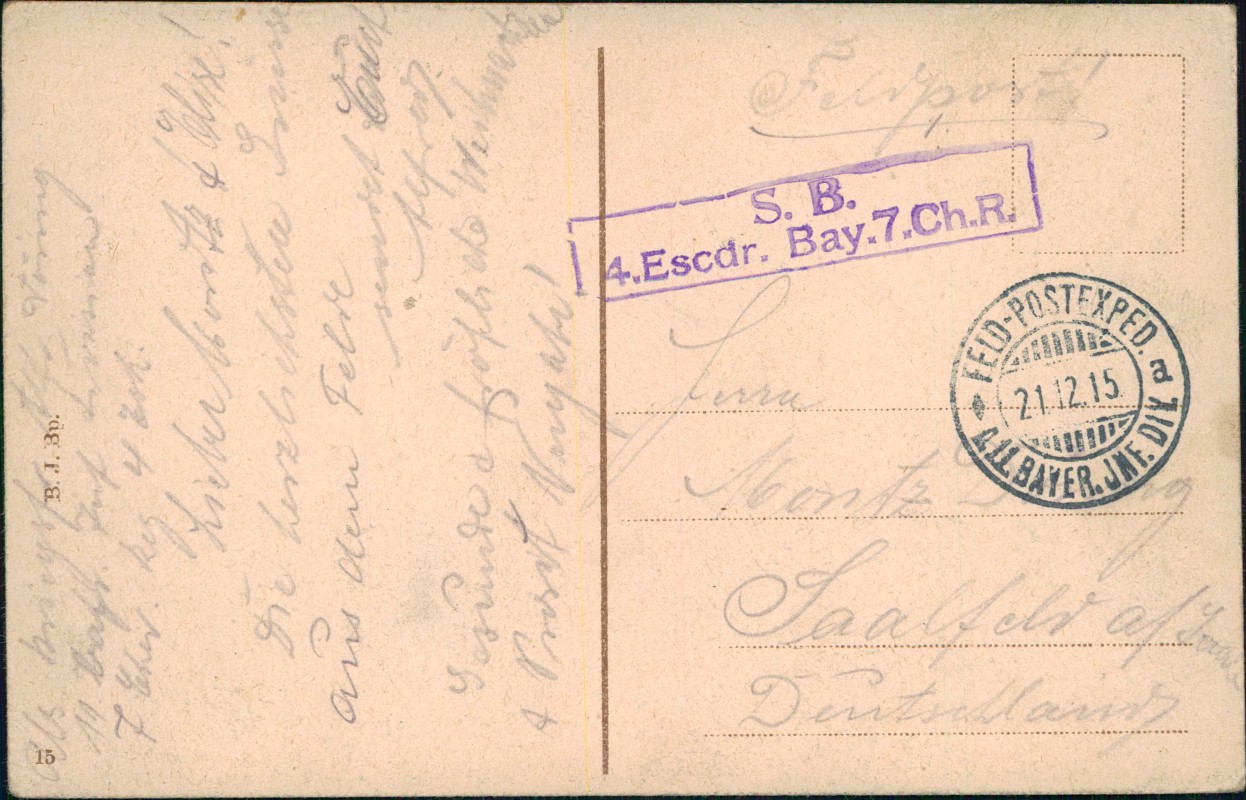 Feldpost!
S. B.
4.Escdr. Bay.7.Ch.R.
FELD-POSTEXPED.
a
21.12.15.
D.11.BAYER.INF.DIV.
Herrn
Moritz
Saalfeld a/
Deutschland
Lieber Moritz & Elise!
Die herzlichsten Grüsse
aus dem Felde
sendet Euch
Alfred.
Gesunde & fröhliche Weihnachten
& Prosit Neujahr!
11 bayr. Inf.
7 Chev. Reg 4 Esk.
B. J. Bp.
15